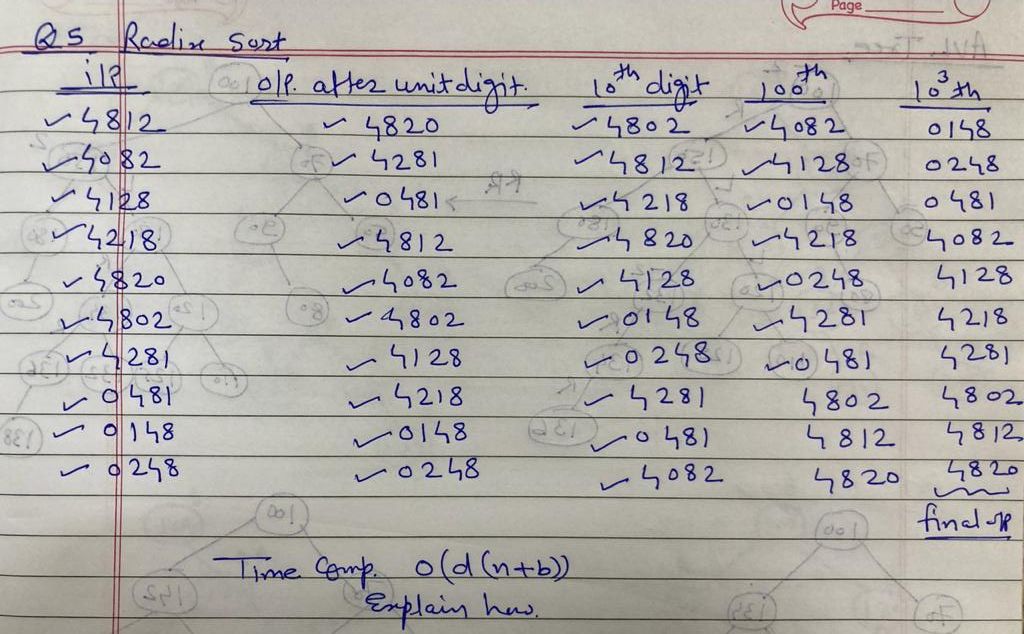 Page
Q5 Radix Sort
i/p O/P. after unit digit. 10th digit 100th 10^3 th
4812 4820 4802 4082 0148
4082 4281 4812 4128 0248
4128 0481 4218 0148 0481
4218 4812 4820 4218 4082
4820 4082 4128 0248 4128
4802 4802 0148 4281 4218
4281 4128 0248 0481 4281
0481 4218 4281 4802 4802
0148 0148 0481 4812 4812
0248 0248 4082 4820 4820
final o/p
Time Comp. O(d(n+b))
Explain how.